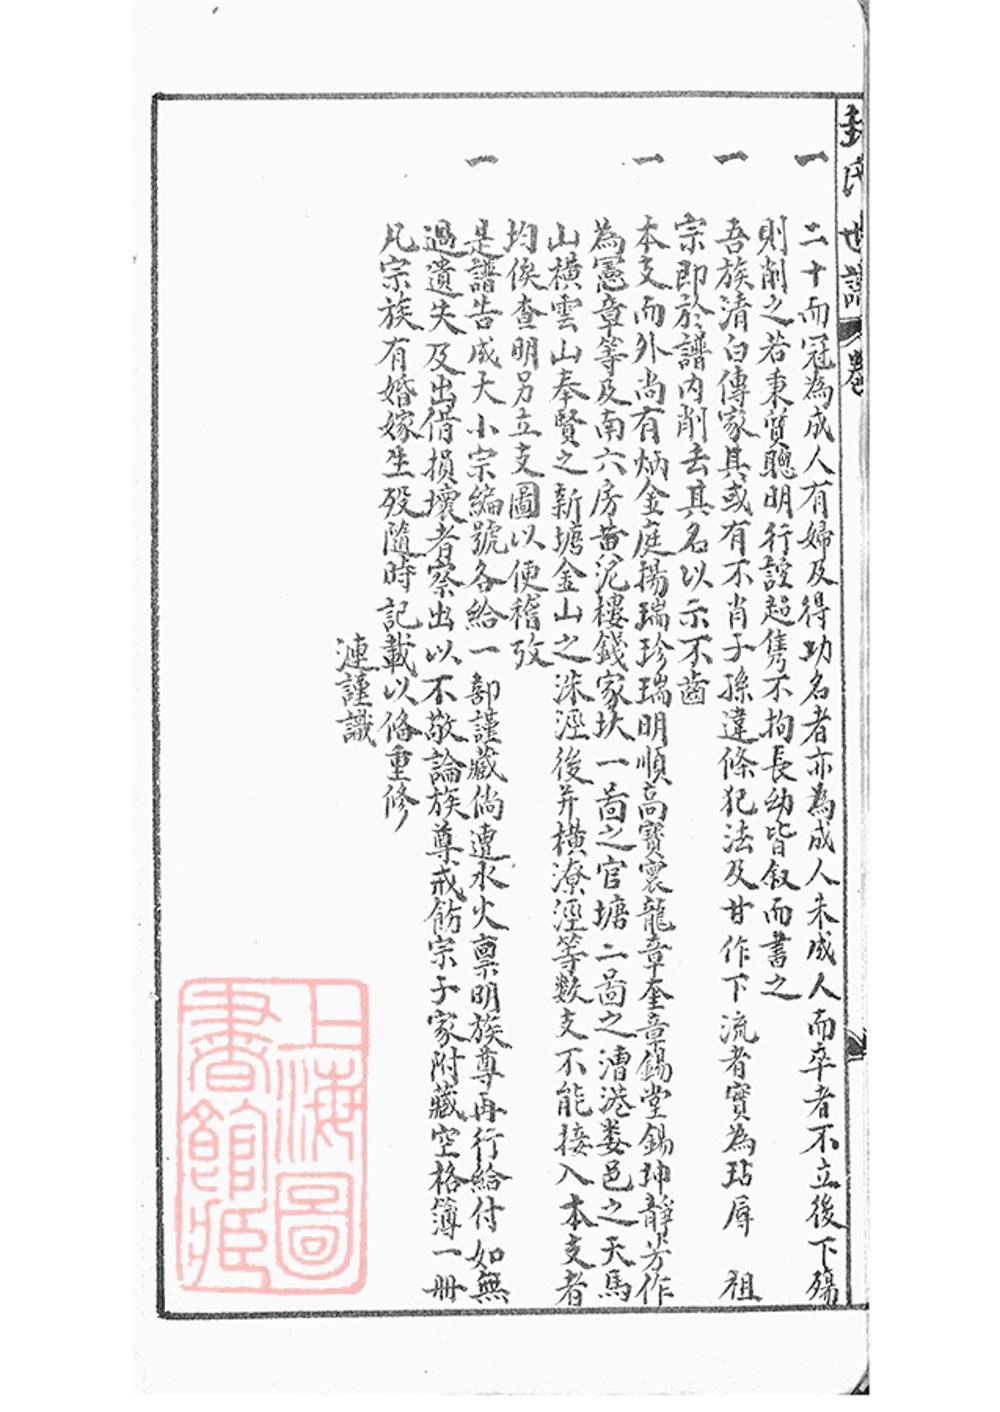 封氏世譜 卷
一 二十而冠為成人有婦及得功名者亦為成人未成人而卒者不立後下殤
則削之若秉質聰明行誼超雋不拘長幼皆叙而書之
一 吾族清白傳家其或有不肖子孫違條犯法及甘作下流者實為玷辱 祖
宗即於譜內削去其名以示不齒
一 本支而外尚有炳金庭揚瑞珍瑞明順高寶震龍章奎章錫堂錫珅靜芳作
為憲章等及南六房黃泥樓錢家圦一啚之官塘二啚之漕港婁邑之天馬
山橫雲山奉賢之新塘金山之洙涇後并橫潦涇等數支不能接入本支者
均俟查明另立支圖以便稽攷
一 是譜告成大小宗編號各給一部謹藏倘遭水火禀明族尊再行給付如無
過遺失及出借損壞者察出以不敬論族尊戒飭宗子家附藏空格簿一册
凡宗族有婚嫁生歿隨時記載以俻重修
漣謹識
上海圖
書館藏